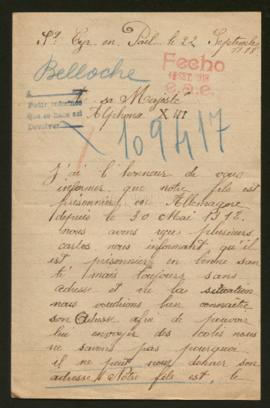 St Cyr en Pail le 22 Septembre
Fecho
S.P.E.
Belloche
Pedir informes
Que se haga así
Devolver
a sa Majesté
Alphonse XIII
109417
J'ai l'honneur de vous
informer que notre fils est
prisonnier en Allemagne
depuis le 30 Mai 1918.
nous avons reçu plusieurs
cartes nous informant qu'il
est prisonnier en bonne san
té mais toujours sans
adresse et ne la situation
nous voudrions bien connaitre
son adresse afin de pouvoir
lui envoyer des colis nous
ne savons pas pourquoi
il ne peut nous donner son
adresse Notre fils est, le